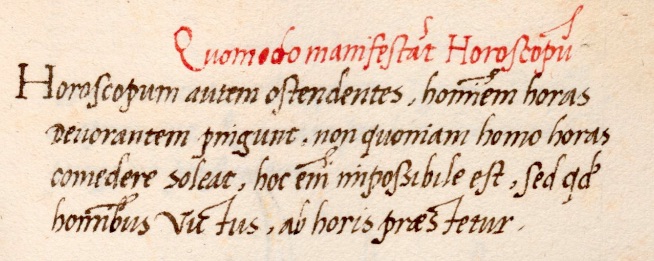 Quomodo manifestāt Horoscopū
Horoscopum autem ostendentes, hoīem horas
Deuorantem pingunt, non quoniam homo horas
comedere soleat, hoc em̄ impossibile est, sed qđ
hoībus Victus, ab horis præstetur.